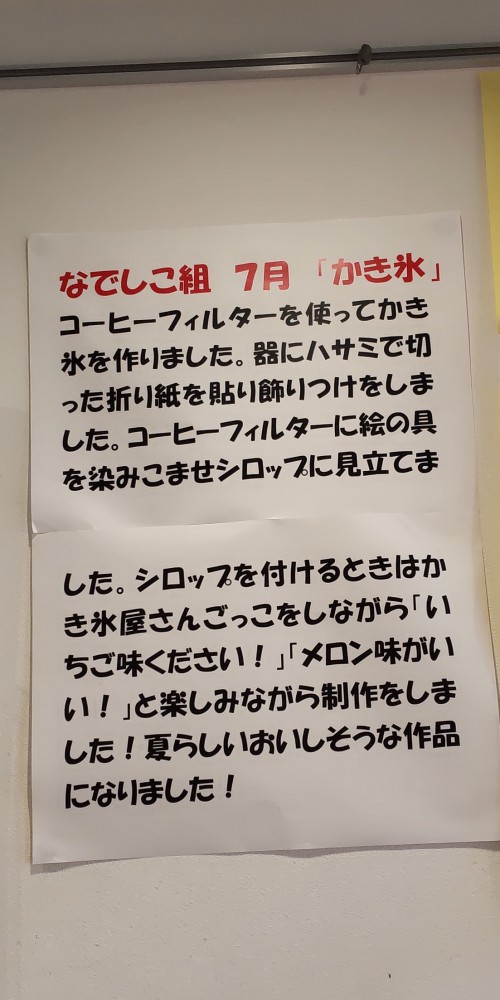 なでしこ組　7月　「かき氷」
コーヒーフィルターを使ってかき
氷を作りました。器にハサミで切
った折り紙を貼り飾りつけをしま
した。コーヒーフィルターに絵の具
を染みこませシロップに見立てま
した。シロップを付けるときはか
き氷屋さんごっこをしながら「い
ちご味ください！」「メロン味がい
い！」と楽しみながら制作をしま
した！夏らしいおいしそうな作品
になりました！